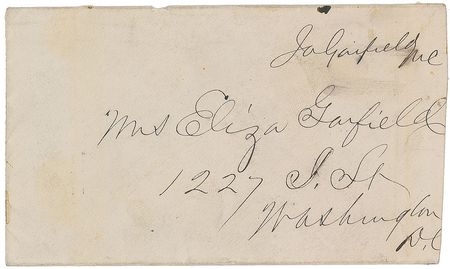 JA Garfield MC
Mrs Eliza Garfield
1227 I. St
Washington
D.C